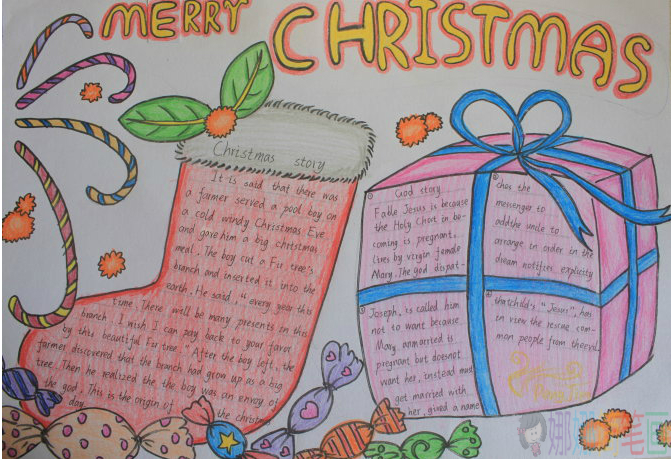 MERRY CHRISTMAS
Christmas story
It is said that there was
a farmer served a pool boy on
a cold windy Christmas Eve
and gave him a big christmas
meal. The boy cut a Fir tree's
branch and inserted it into the
earth. He said, "every year this
time. There will be many presents in this
branch, I wish I can pay back to your favor
by this beautiful Fir tree." After the boy left, the
farmer discovered that the branch had grow up as a big
tree. Then he realized the the boy was an envoy of
the god. This is the origin of the christmas
day.
① God story
Fable Jesus is because
the Holy Ghost in be-
coming is pregnant.
lives by virgin female
Mary. The god dispat-
② ches the
messenger to
addthe uncle to
arrange in order in the
dream notifies explicity
③ Joseph, is called him
not to want because
Mary unmarried is
pregnant but doesnot
want her, instead must
get married with
her, gived a name
④ thatchild's "Jesus", has
in view the rescue com-
mon people from theevil
娜娜 笔画